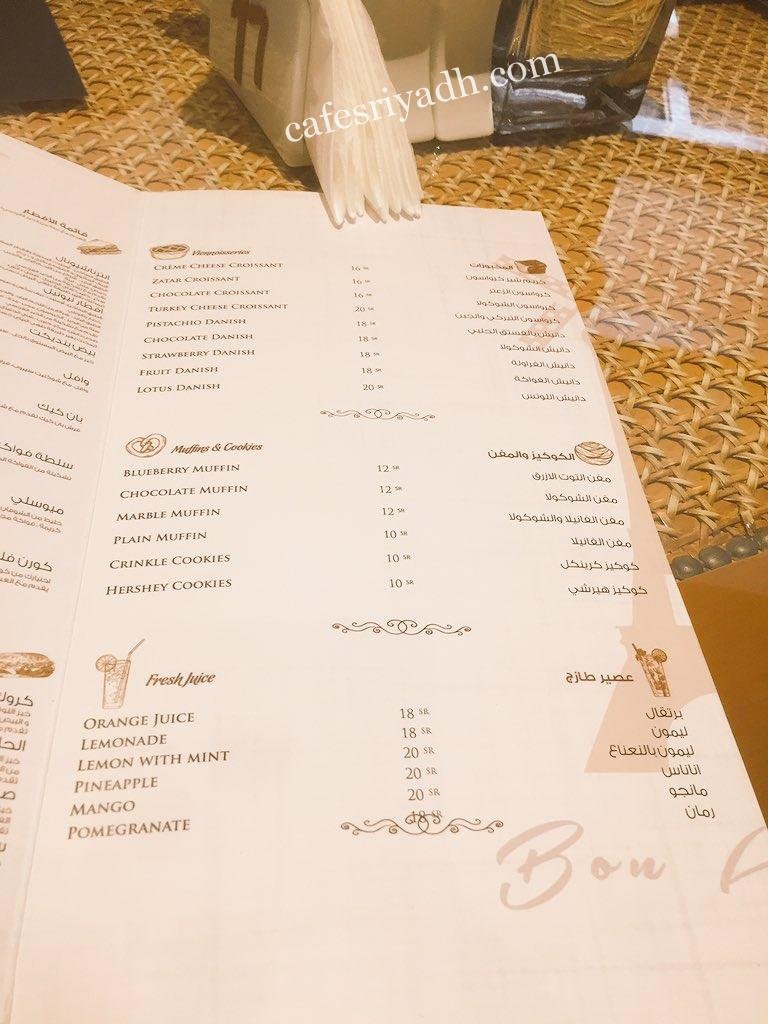 cafesriyadh.com
قائمة الأفطار
انترناشيونال
افطار تيوس
بيض بنديكت
وافل
بان كيك
سلطة فواكه
ميوسلي
كورن فل
Viennoisseries
المخبوزات
CRÈME CHEESE CROISSANT 16 SR كريم شيز كرواسون
ZATAR CROISSANT 16 SR كرواسون الزعتر
CHOCOLATE CROISSANT 16 SR كرواسون الشوكولا
TURKEY CHEESE CROISSANT 20 SR كرواسون التيركي والجبن
PISTACHIO DANISH 18 SR دانيش بالفستق الحلبي
CHOCOLATE DANISH 18 SR دانيش الشوكولا
STRAWBERRY DANISH 18 SR دانيش الفراولة
FRUIT DANISH 18 SR دانيش الفواكة
LOTUS DANISH 20 SR دانيش اللوتس
Muffins & Cookies
الكوكيز والمفن
BLUEBERRY MUFFIN 12 SR مفن التوت الازرق
CHOCOLATE MUFFIN 12 SR مفن الشوكولا
MARBLE MUFFIN 12 SR مفن الفانيلا والشوكولا
PLAIN MUFFIN 10 SR مفن الفانيلا
CRINKLE COOKIES 10 SR كوكيز كرينكل
HERSHEY COOKIES 10 SR كوكيز هيرشي
Fresh Juice
عصير طازج
ORANGE JUICE 18 SR برتقال
LEMONADE 18 SR ليمون
LEMON WITH MINT 20 SR ليمون بالنعناع
PINEAPPLE 20 SR اناناس
MANGO 20 SR مانجو
POMEGRANATE 18 SR رمان
Bon A